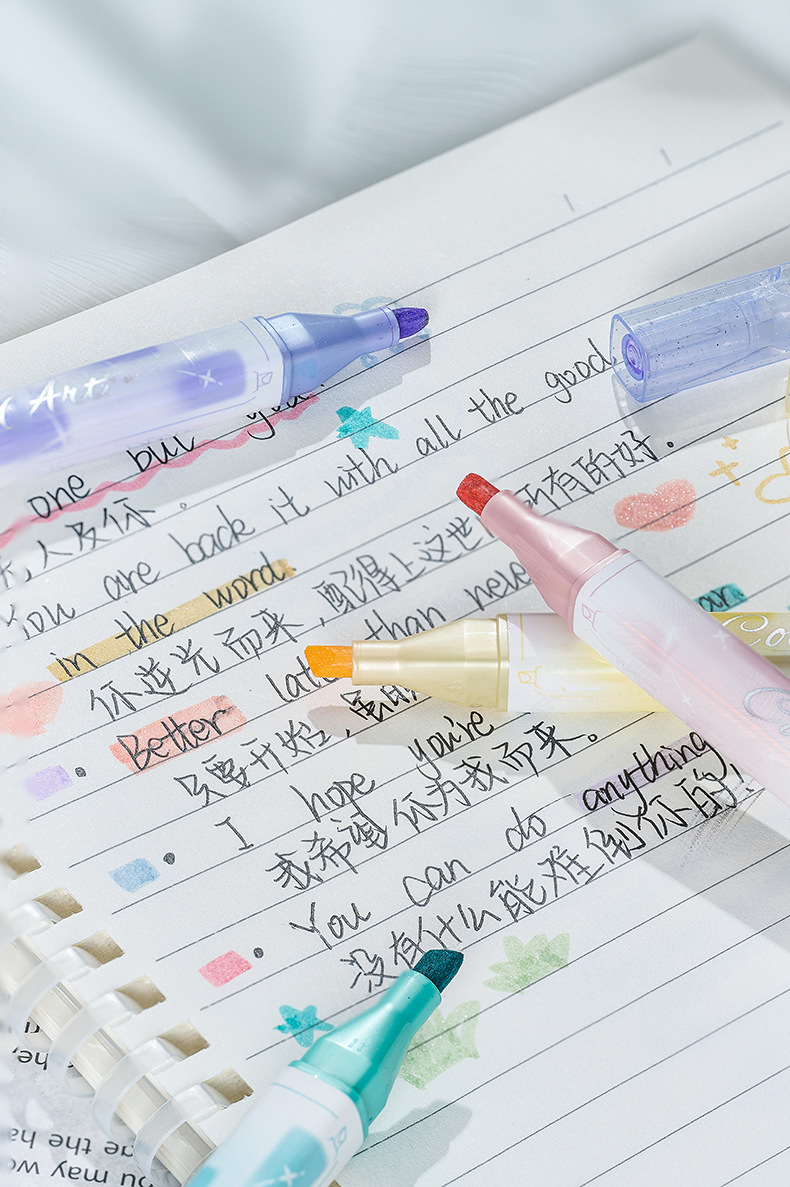 Art
one but you.
人及你。
You are back it with all the good
in the word.
你逆光而来,配得上这世 所有的好。
Better late than never
只要开始,
I hope you're
我希望你为我而来。
You can do anything
没有什么能难倒你的,
he,
ge the ha
ou may wo